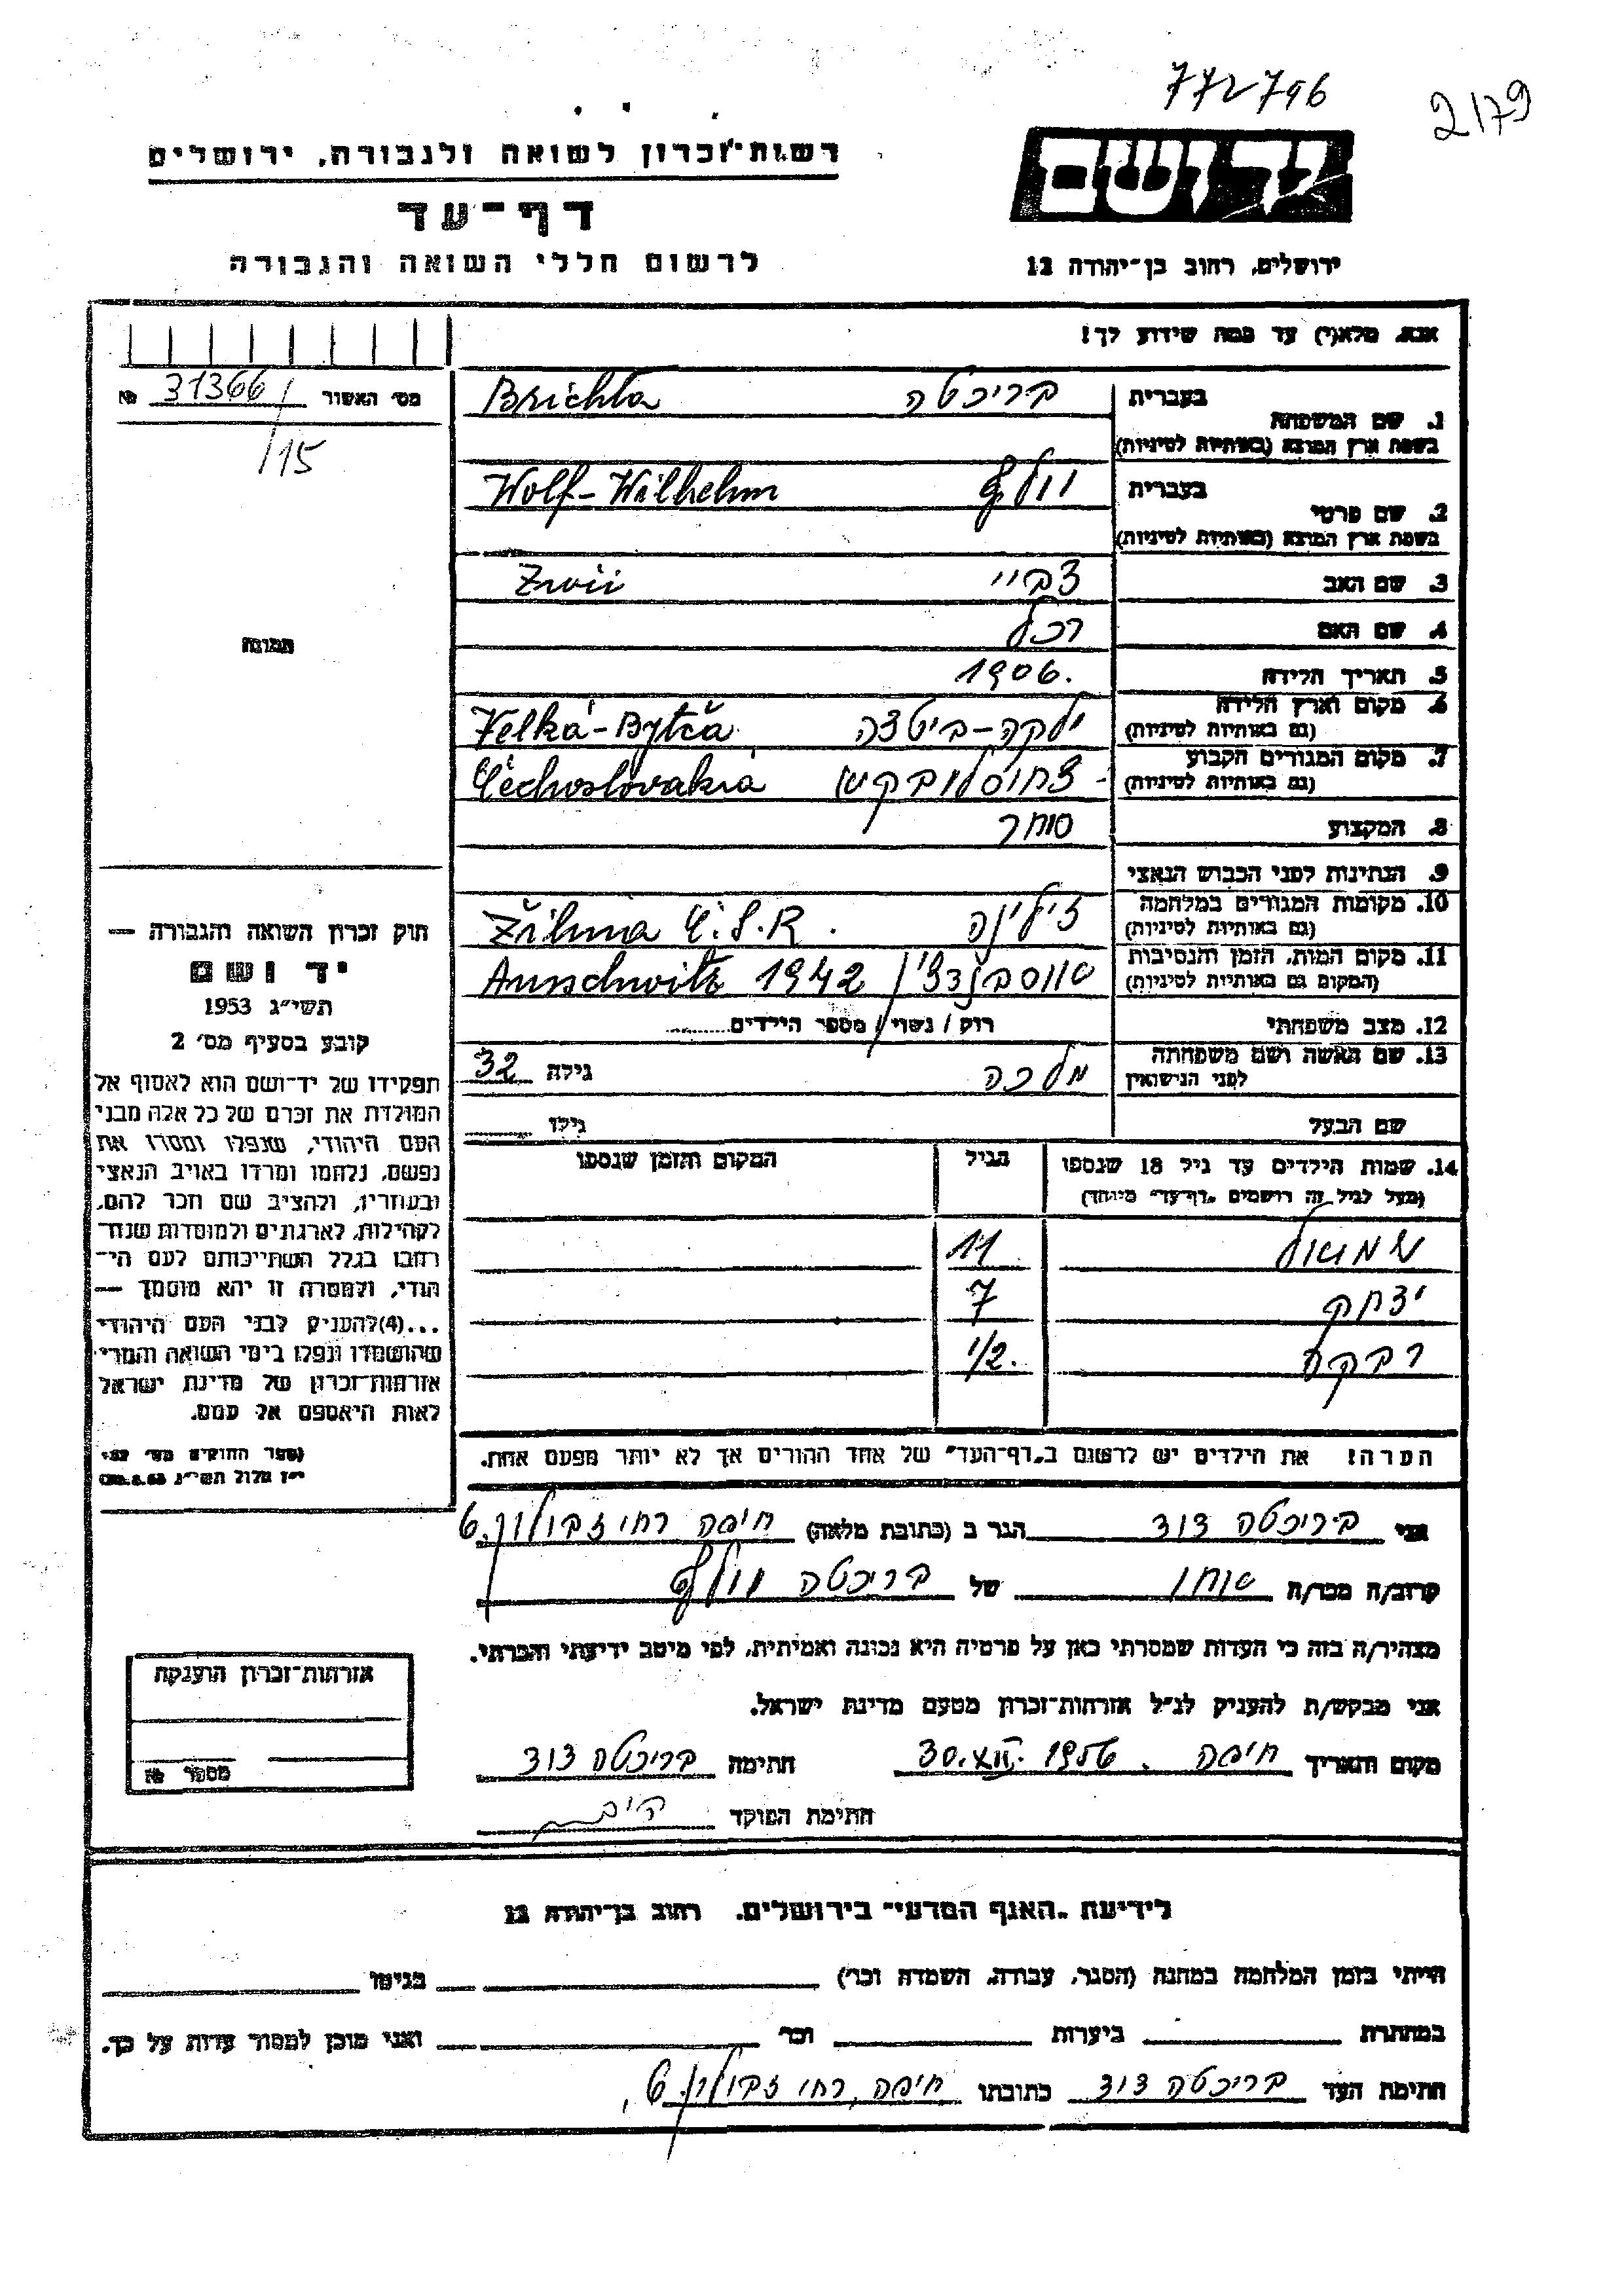 772796
2179
רשות־זכרון לשואה ולגבורה, ירושלים
דף־עד
לרשום חללי השואה והגבורה
יד ושם
ירושלים, רחוב בן־יהודה 12
אנא, מלא(י) עד כמה שידוע לך!
מס׳ האשור 31366 №
/15
תמונה
1. שם המשפחה
בעברית בריכטה Brichta
בשפת ארץ המוצא (באותיות לטיניות)
2. שם פרטי
בעברית וולף Wolf-Wilhelm
בשפת ארץ המוצא (באותיות לטיניות)
3. שם האב צביי Zwii
4. שם האם רכל
5. תאריך הלידה 1906.
6. מקום וארץ הלידה ילקה-ביטצה Velká-Bytča
(גם באותיות לטיניות)
7. מקום המגורים הקבוע Čechoslovakia
(גם באותיות לטיניות)
8. המקצוע סוחר
9. הנתינות לפני הכבוש הנאצי
10. מקומות המגורים במלחמה זילינה Žilina Č.S.R.
(גם באותיות לטיניות)
11. מקום המות, הזמן והנסיבות 1942
(המקום גם באותיות לטיניות)
12. מצב משפחתי רוק / נשוי / מספר הילדים
13. שם האשה ושם משפחתה מלכה גילה 32
לפני הנישואין
שם הבעל גילו
14. שמות הילדים עד גיל 18 שנספו הגיל המקום והזמן שנספו
(מעל לגיל זה רושמים „דף־עד״ מיוחד)
שמואל 11
יצחק 7
רבקה 1/2.
הערה! את הילדים יש לרשום ב„דף־העד״ של אחד ההורים אך לא יותר מפעם אחת.
חוק זכרון השואה והגבורה —
יד ושם
תשי״ג 1953
קובע בסעיף מס׳ 2
תפקידו של יד־ושם הוא לאסוף אל
המולדת את זכרם של כל אלה מבני
העם היהודי, שנפלו ומסרו את
נפשם, נלחמו ומרדו באויב הנאצי
ובעוזריו, ולהציב שם וזכר להם,
לקהילות, לארגונים ולמוסדות שנח־
רבו בגלל השתייכותם לעם הי־
הודי, ולמטרה זו יהא מוסמך —
...(4) להעניק לבני העם היהודי
שהושמדו ונפלו בימי השואה והמרי
אזרחות־זכרון של מדינת ישראל
לאות היאספם אל עמם.
(ספר החוקים מס׳ 132
י״ז אלול תשי״ג 28.8.53)
אני בריכטה דוד הגר ב (כתובת מלאה) חיפה רחי זבולון 6
קרוב/ה מכר/ה של בריכטה וולף
מצהיר/ה בזה כי העדות שמסרתי כאן על פרטיה היא נכונה ואמיתית, לפי מיטב ידיעתי והכרתי.
אני מבקש/ת להעניק לנ״ל אזרחות־זכרון מטעם מדינת ישראל.
מקום ותאריך חיפה 30.XII.1956 חתימה בריכטה דוד
חתימת הפוקד
אזרחות־זכרון הוענקה
מספר №
לידיעת „האגף המדעי״ בירושלים, רחוב בן־יהודה 12
הייתי בזמן המלחמה במחנה (הסגר, עבודה, השמדה וכו׳) בגיטו
במחתרת ביערות וכו׳ ואני מוכן למסור עדות על כך.
חתימת העד בריכטה דוד כתובתו חיפה, רחי זבולון 6